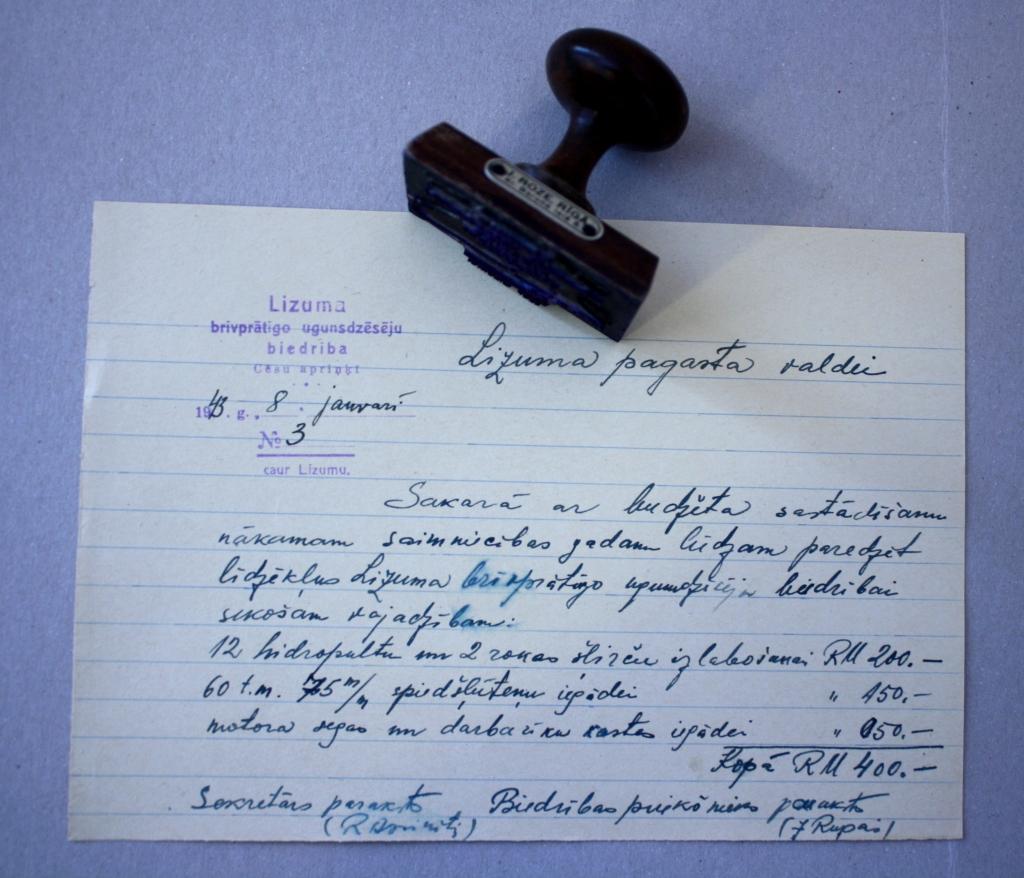 J. ROZE, RĪGĀ
Lizuma
brīvprātīgo ugunsdzēsēju
biedrība
Cēsu apriņķī
Lizuma pagasta valdei
1943. g. „ 8 . janvarī
№ 3
caur Lizumu.
Sakarā ar budžeta sastādīšanu
nākamam saimniecības gadam lūdzam paredzēt
līdzēkļus Lizuma brīvprātīgo ugunsdzēsēju biedrībai
sekošam vajadzībam:
12 hidropultu un 2 rokas šļirču izlabošanai RM 200.—
60 t.m. 75 m/m spiedšļūteņu iegādei " 150.—
motora segas un darbarīku kastes iegādei " 050.—
Kopā RM 400.—
Sekretārs paraksts Biedrības priekšnieks paraksts